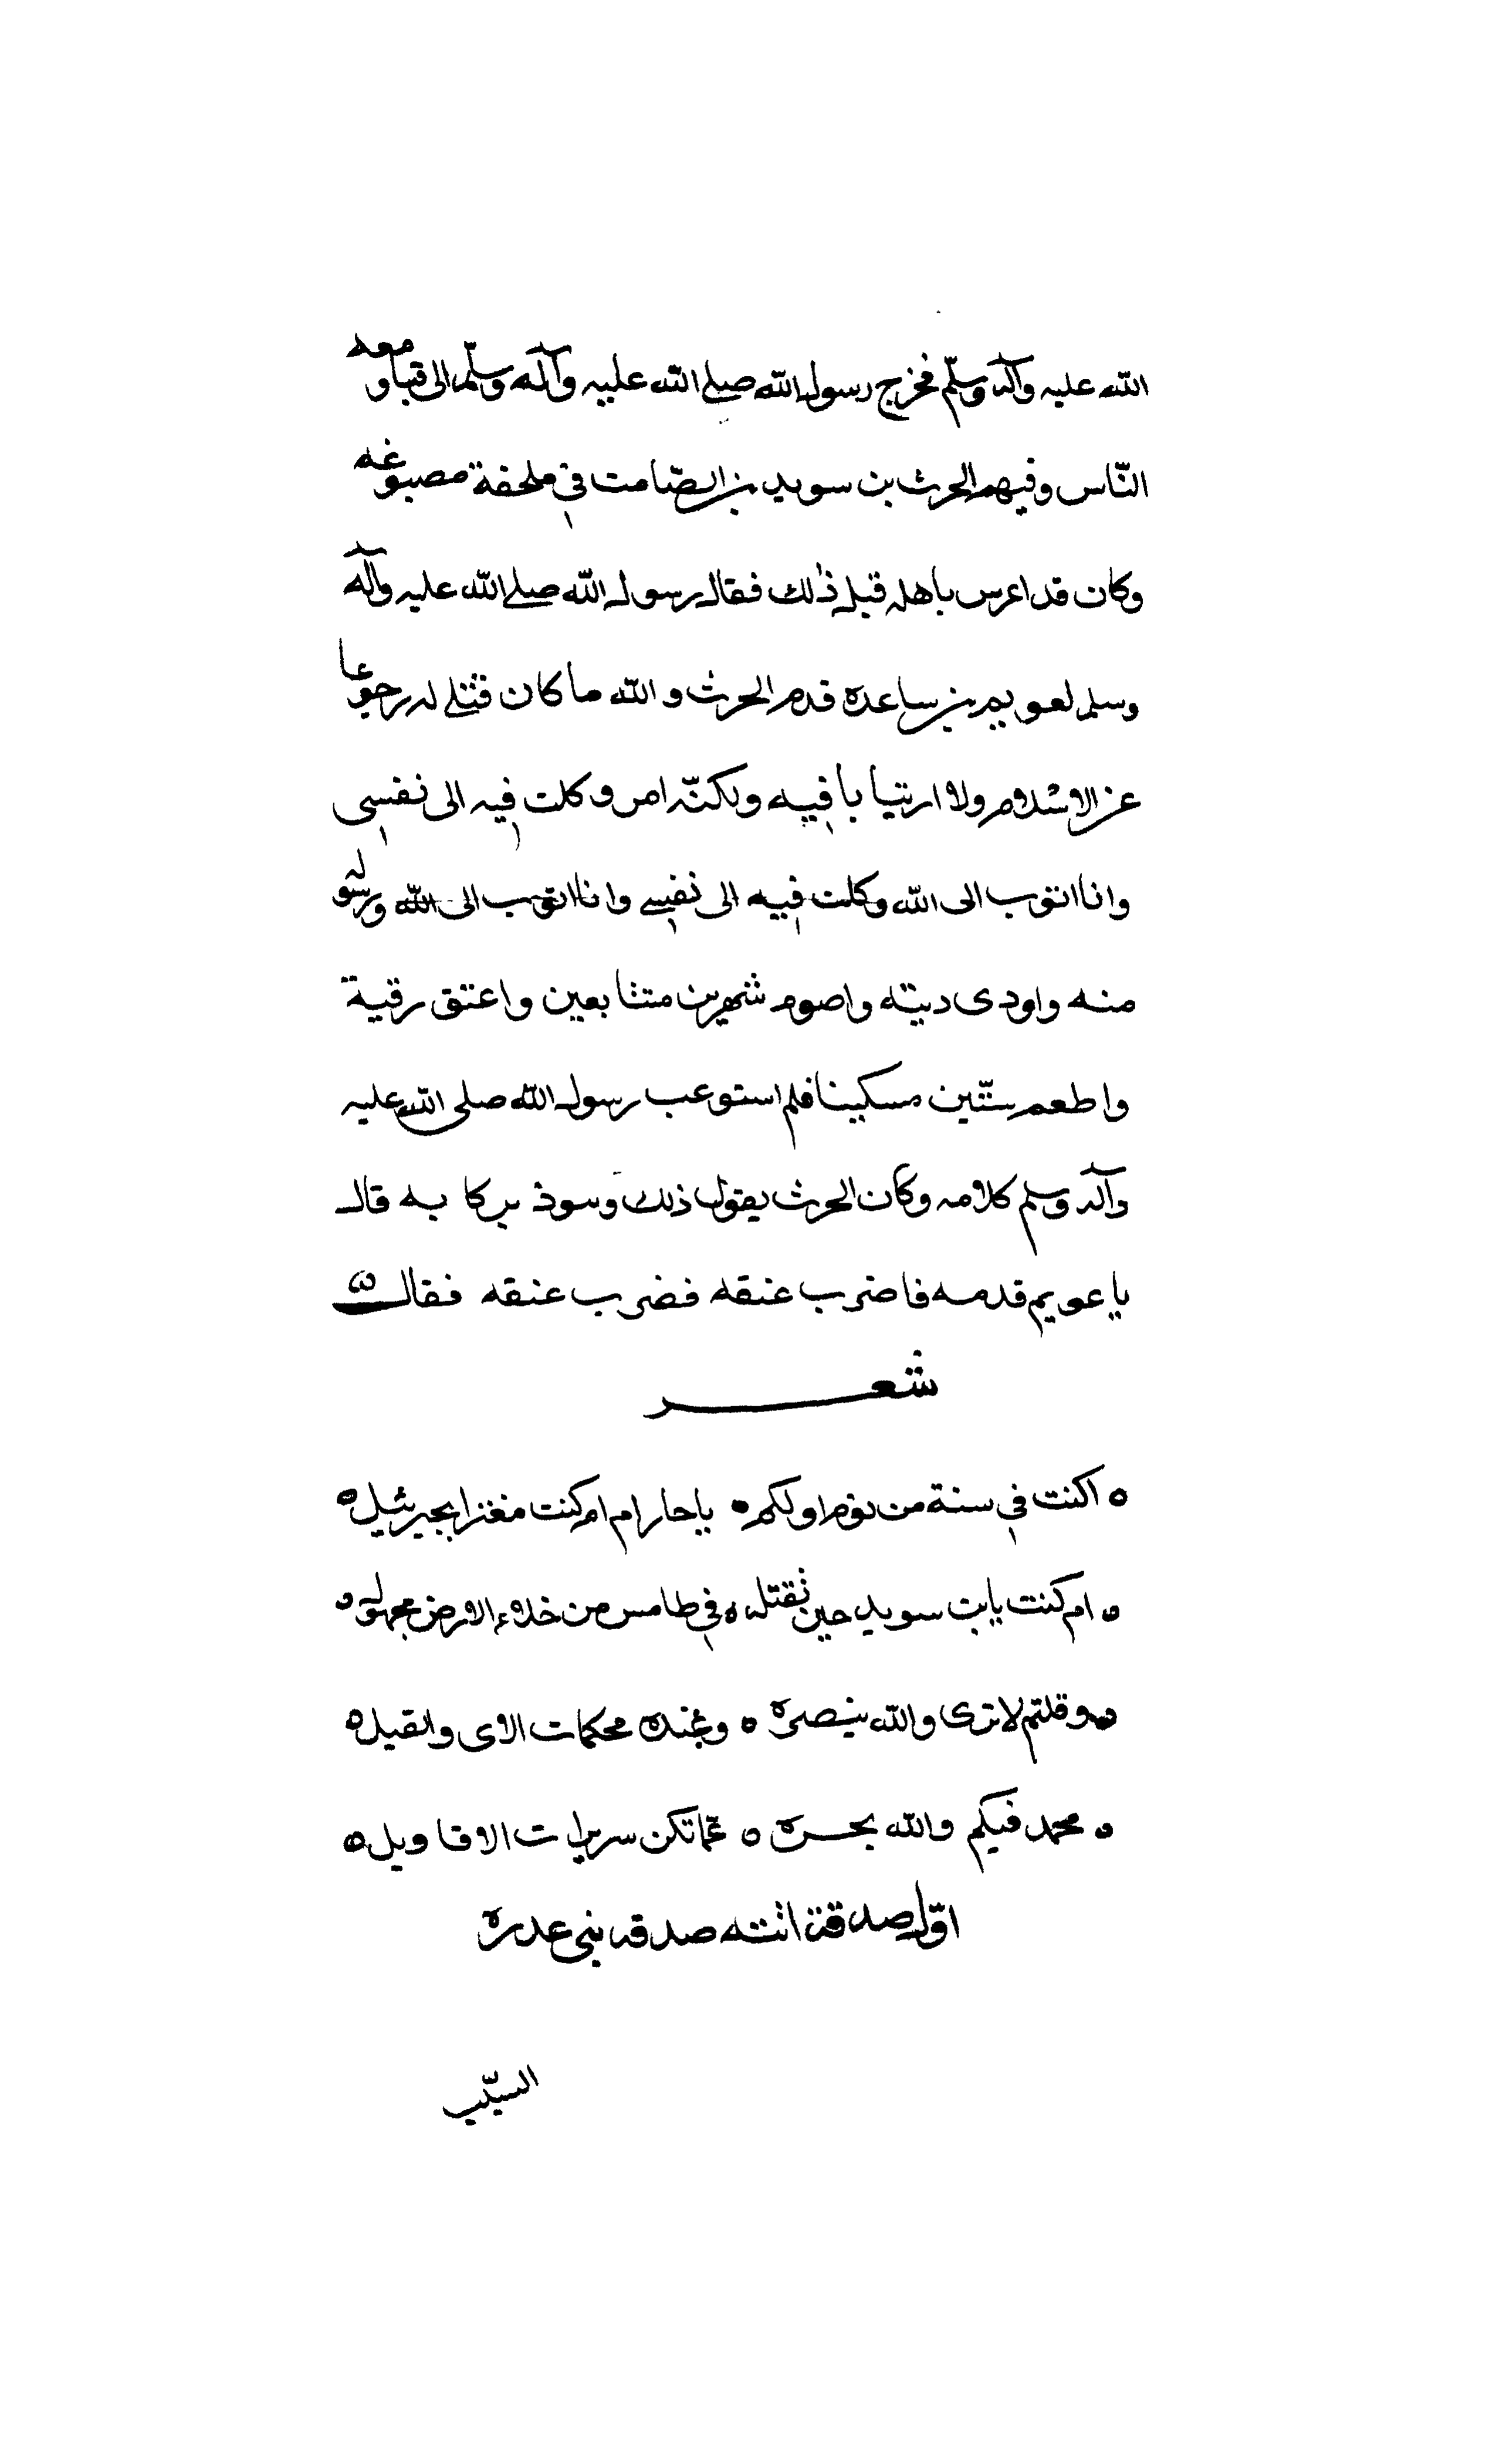 الله عليه وآله وسلّم فخرج رسول الله صلى الله عليه وآله وسلّم الى قبا ومعه
النّاس وفيهم الحرث بن سويد بن الصّامت في ملحفة مصبوغه
وكان قد اعرس باهله قبل ذلك فقال رسول الله صلى الله عليه وآله
وسلم لعويم بن ساعدة قدم الحرث والله ما كان قتلى له رجوعا
عن الاسلام ولا ارتيابا فيه ولكنّه امر وكلت فيه الى نفسى
وانا اتوب الى الله وكلت فيه الى نفسي وانا اتوب الى الله ورسوله
منه واودى ديته واصوم شهرين متتابعين واعتق رقبة
واطعم ستّين مسكينا فلم استوعب رسول الله صلى الله عليه
وآله وسلم كلامه وكان الحرث يقول ذلك به قال
يا عويم قدمه فاضرب عنقه فضرب عنقه فقال
شعر
اكنت في سنة من نوم اولكم ه يا حار ام ام كنت مغترا بجبرئيل ه
ه ام كنت يابن سويد حين تقتله ه في طامس من خلاء الارض مجهوله ه
وقلتم لا نرى والله ينصره ه وعنده محكمات الاى والقيل ه
ه محمد فيكم والله بحسره ه عما تكن سريرات الاقاويل ه
اوّل صدقة اتته صدقه بنى عدره